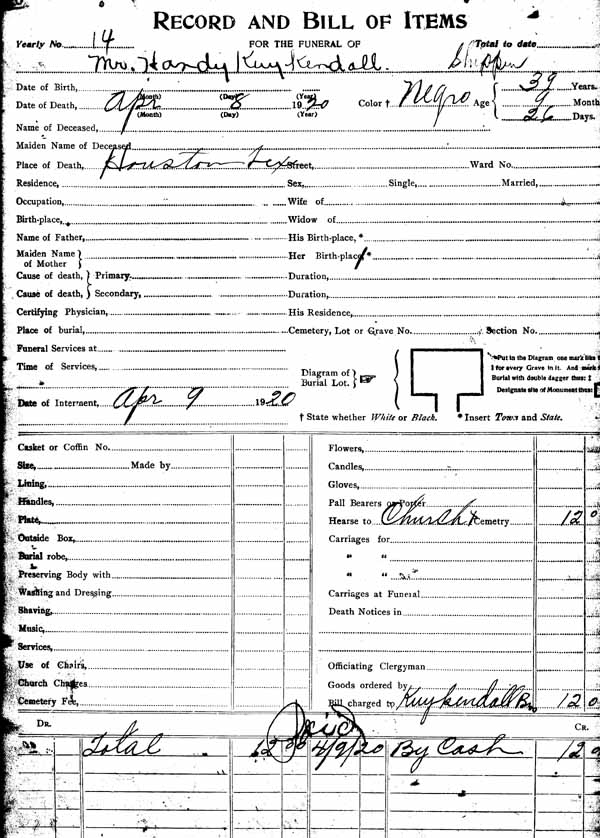 RECORD AND BILL OF ITEMS
Yearly No. 14 FOR THE FUNERAL OF Total to date
Mr. Handy Kuykendall. Shippen
Date of Birth, (Month) (Day) (Year) 39 Years.
Date of Death, Apr 8 1920 Color † Negro Age 9 Month
(Month) (Day) (Year) 26 Days.
Name of Deceased,
Maiden Name of Deceased
Place of Death, Houston Tex Street, Ward No.
Residence, Sex, Single, Married,
Occupation, Wife of
Birth-place, Widow of
Name of Father, His Birth-place, *
Maiden Name of Mother Her Birth-place *
Cause of death, Primary Duration,
Cause of death, Secondary, Duration,
Certifying Physician, His Residence,
Place of burial, Cemetery, Lot or Grave No. Section No.
Funeral Services at
Time of Services,
Diagram of Burial Lot.
Put in the Diagram one mark like
for every Grave in it. And mark
Burial with double dagger thus: ‡
Designate site of Monument thus:
Date of Interment, Apr 9 1920
† State whether White or Black. * Insert Town and State.
Casket or Coffin No. Flowers,
Size, Made by Candles,
Lining, Gloves,
Handles, Pall Bearers or Porter
Plate, Hearse to Church & Cemetry 12 0
Outside Box, Carriages for
Burial robe, " "
Preserving Body with " "
Washing and Dressing Carriages at Funeral
Shaving, Death Notices in
Music,
Services,
Use of Chairs, Officiating Clergyman
Church Charges Goods ordered by
Cemetery Fee, Bill charged to Kuykendall Bro 12 0
DR. Paid CR.
Total 12 00 4/9/20 By Cash 12 0